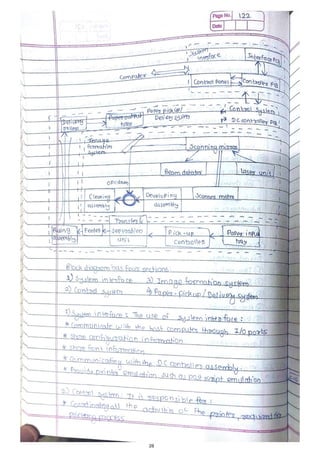 Page No. 122
Date
System
interface
Interface PCB
Computer
Control Panel
Controller PCB
Control System
DC controller PCB
Paper pickup/
Delivery system
Delivery
Paper output
tray
Image
formation
system
Scanning mirror
Beam detector
Laser unit
OPC drum
Cleaning
assembly
Developing
assembly
Scanner motor
Transfer/
separation
unit
Fixing
assembly
Feeder
Pick-up
Controller
Paper input
tray
Block diagram has four sections
1) System interface 3) Image formation system
2) Control system 4) Paper-Pickup/Delivery System
1) System interface : The use of system interface :
* Communicate with the host computer through I/O ports
* Store configuration information
* Store font information
* Communicating with the DC controller assembly.
* Provide printer emulation such as post script emulation
2) Control System : It is responsible for :
* Coordinating all the activities of the printer, required for
printing process
28